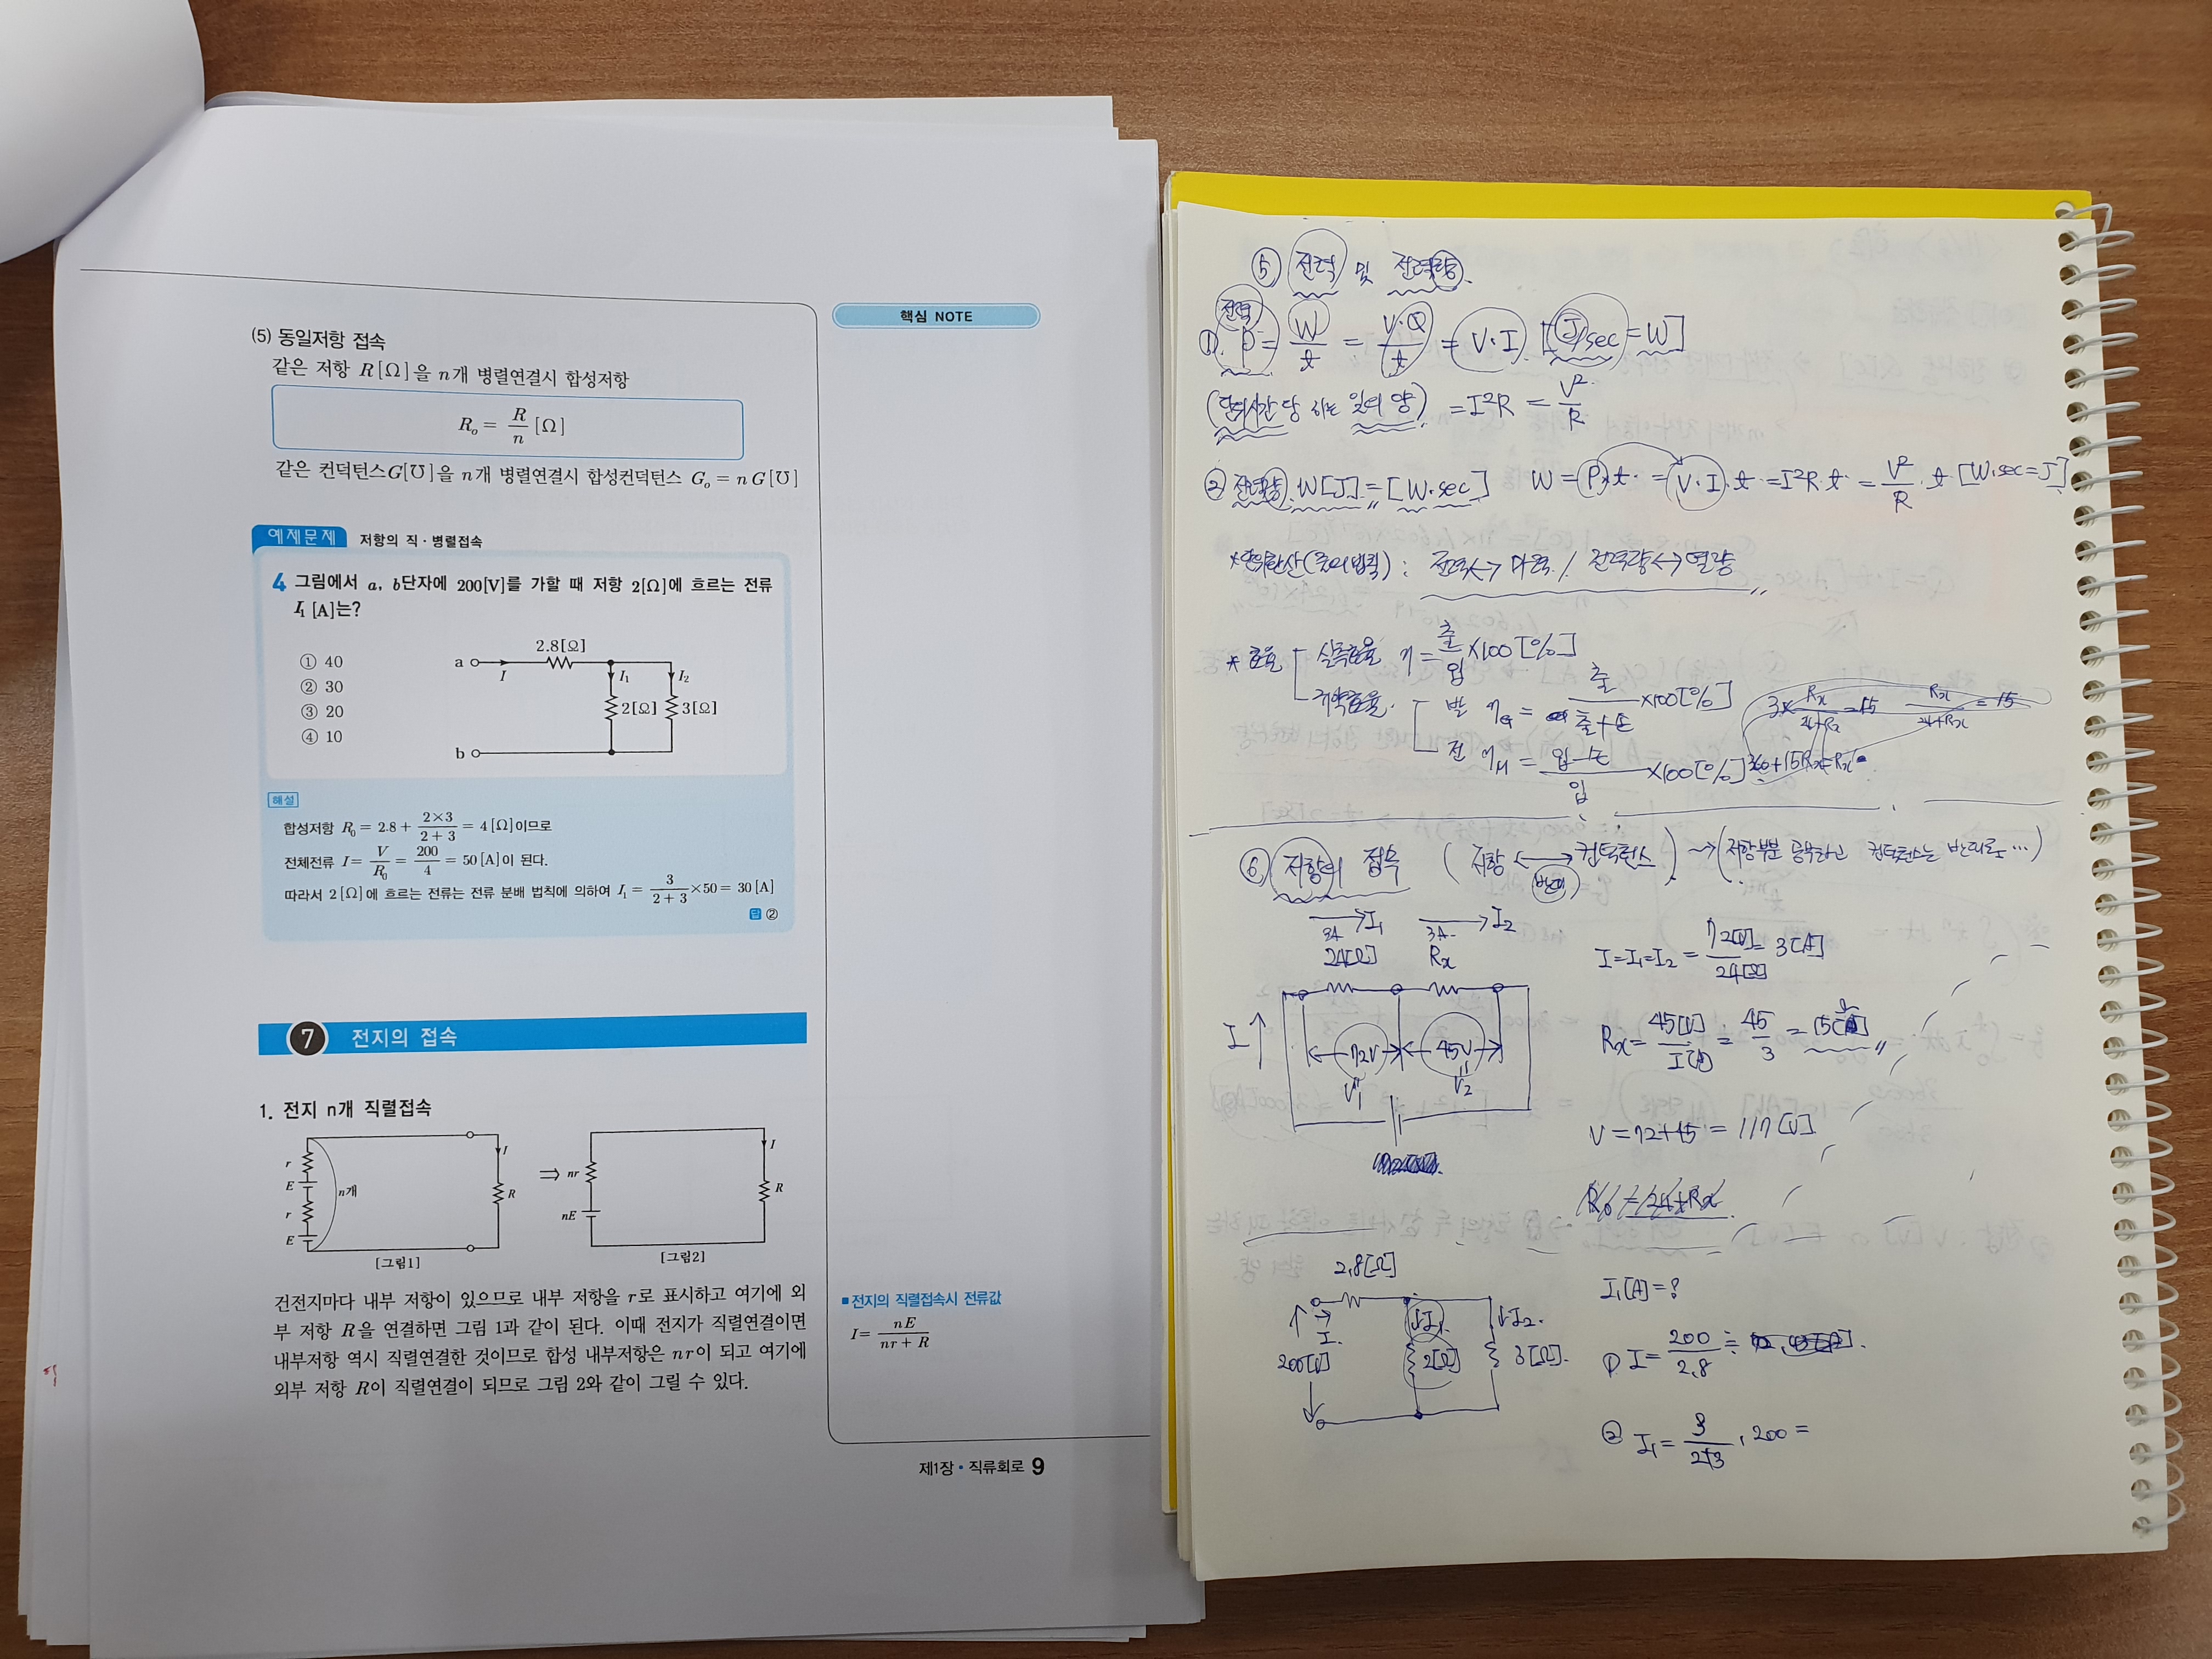 핵심 NOTE
(5) 동일저항 접속
같은 저항 R[Ω]을 n개 병렬연결시 합성저항
R₀ = R/n [Ω]
같은 컨덕턴스G[℧]을 n개 병렬연결시 합성컨덕턴스 G₀ = n G[℧]
예제문제 저항의 직·병렬접속
4 그림에서 a, b단자에 200[V]를 가할 때 저항 2[Ω]에 흐르는 전류
I₁ [A]는?
① 40
② 30
③ 20
④ 10
2.8[Ω]
a
I
I₁
I₂
2[Ω]
3[Ω]
b
해설
합성저항 R₀ = 2.8 + 2×3/2+3 = 4[Ω]이므로
전체전류 I = V/R₀ = 200/4 = 50[A]이 된다.
따라서 2[Ω]에 흐르는 전류는 전류 분배 법칙에 의하여 I₁ = 3/2+3 ×50 = 30[A]
답 ②
7 전지의 접속
1. 전지 n개 직렬접속
r
E
r
E
n개
I
R
[그림1]
⇒
nr
nE
I
R
[그림2]
건전지마다 내부 저항이 있으므로 내부 저항을 r로 표시하고 여기에 외
부 저항 R을 연결하면 그림 1과 같이 된다. 이때 전지가 직렬연결이면
내부저항 역시 직렬연결한 것이므로 합성 내부저항은 nr이 되고 여기에
외부 저항 R이 직렬연결이 되므로 그림 2와 같이 그릴 수 있다.
■ 전지의 직렬접속시 전류값
I = nE/nr + R
제1장 · 직류회로 9
⑤ 전력 및 전력량.
전력
①. P = W/t = V·Q/t = V·I [J/sec = W]
(단위시간당 하는 일의 양) = I²R = V²/R
② 전력량. W[J] = [W·sec] W = P×t = V·I·t = I²R·t = V²/R·t [W·sec = J]
*단위환산(줄의법칙) : 전력↔마력 / 전력량↔열량
* 효율 실측효율 η = 출/입 ×100[%]
규약효율. 발 ηG = 출/출+손 ×100[%]
전 ηM = 입-손/입 ×100[%]
3× Rx/24+Rx = 15 Rx/24+Rx = 15
360+15Rx=Rx
⑥ 저항의 접속 (저항 ↔ 컨덕턴스) → (저항부분 공부하고 컨덕턴스는 반대로…)
반대
→I₁ →I₂
3A 3A
24[Ω] Rx
I
72V
V₁
45V
V₂
I=I₁=I₂ = 72[V]/24[Ω] = 3[A]
Rx = 45[V]/I[A] = 45/3 = 15[Ω]
V = 72+45 = 117[V]
R₀ = 24+Rx
2.8[Ω]
I
200[V]
I₁
2[Ω]
I₂
3[Ω]
I₁[A] = ?
① I = 200/2.8 ≒
② I₁ = 3/2+3 · 200 =